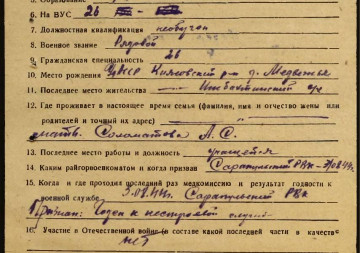 6. На ВУС 26
7. Должностная квалификация необучен
8. Военное звание Рядовой
9. Гражданская специальность 26
10. Место рождения УАССР Киясовский р-н д. Медвежье
11. Последнее место жительства
12. Где проживает в настоящее время семья (фамилия, имя и отчество жены или
родителей и точный их адрес)
мать. Саламатова А. С.
13. Последнее место работы и должность учащегося
14. Каким райгорвоенкоматом и когда призван Сарапульский РВК
15. Когда и где проходил последний раз медкомиссию и результат годности к
военной службе Сарапульский РВК
Признан: Годен к нестроевой службе
16. Участие в Отечественной войне (в составе какой последней части в качестве
нет